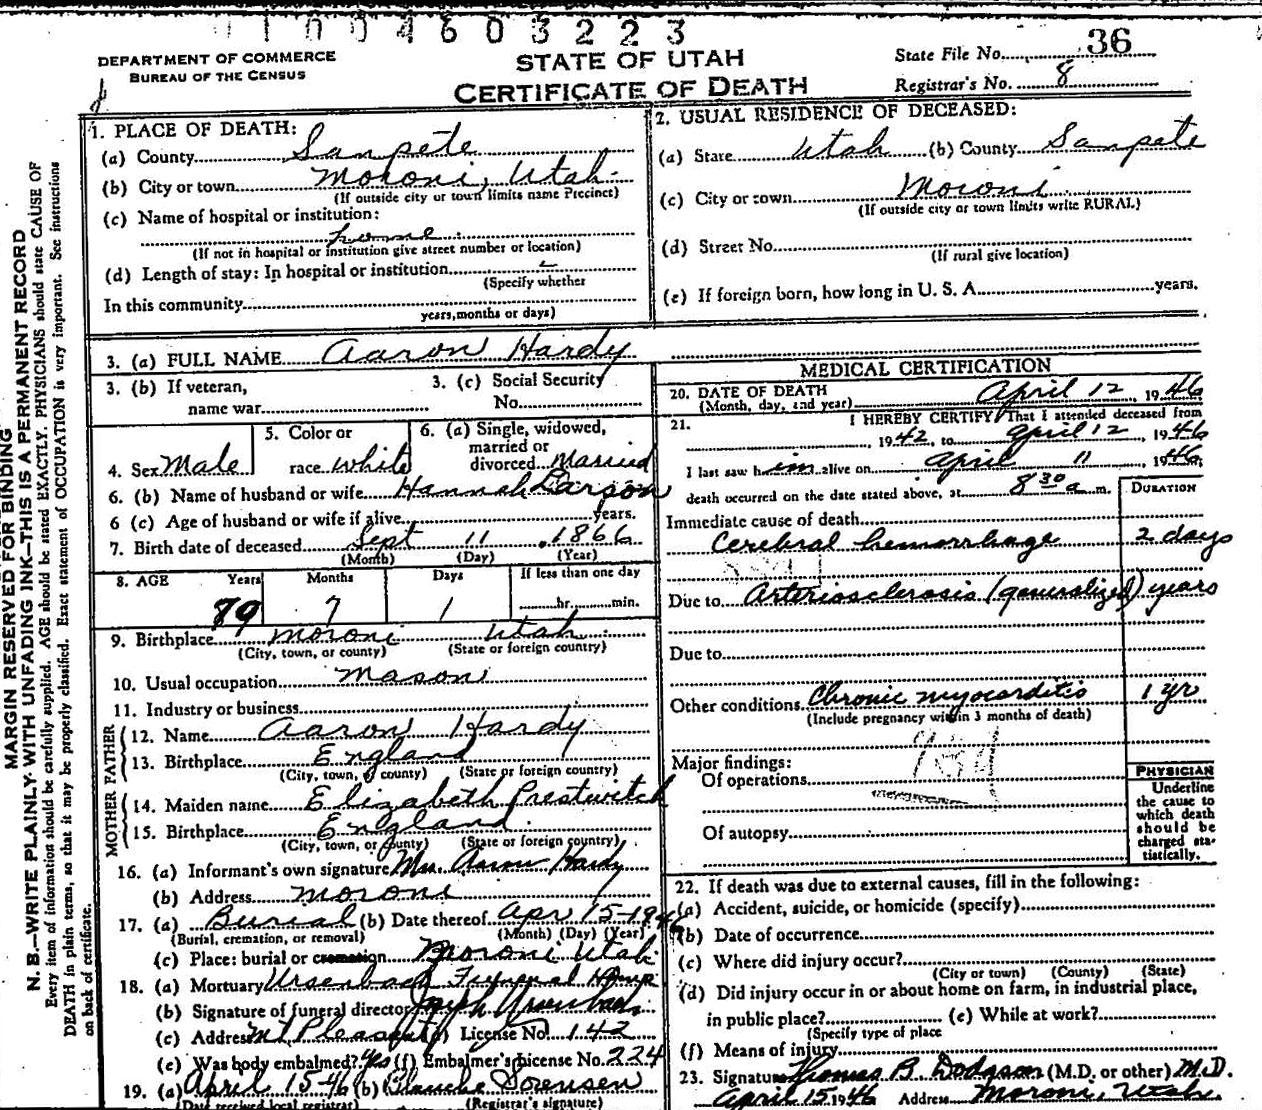 1004603223
DEPARTMENT OF COMMERCE
BUREAU OF THE CENSUS
STATE OF UTAH
CERTIFICATE OF DEATH
State File No. 36
Registrar's No. 8
MARGIN RESERVED FOR BINDING
N. B.—WRITE PLAINLY WITH UNFADING INK—THIS IS A PERMANENT RECORD
Every item of information should be carefully supplied. AGE should be stated EXACTLY. PHYSICIANS should state CAUSE OF
DEATH in plain terms, so that it may be properly classified. Exact statement of OCCUPATION is very important. See instructions
on back of certificate.
1. PLACE OF DEATH:
(a) County Sanpete
(b) City or town Moroni, Utah
(If outside city or town limits name Precinct)
(c) Name of hospital or institution:
home
(If not in hospital or institution give street number or location)
(d) Length of stay: In hospital or institution
(Specify whether
In this community
years, months or days)
2. USUAL RESIDENCE OF DECEASED:
(a) State Utah (b) County Sanpete
(c) City or town Moroni
(If outside city or town limits write RURAL)
(d) Street No.
(If rural give location)
(e) If foreign born, how long in U. S. A. years.
3. (a) FULL NAME Aaron Hardy
3. (b) If veteran,
name war
3. (c) Social Security
No.
4. Sex Male
5. Color or
race white
6. (a) Single, widowed,
married or
divorced Married
6. (b) Name of husband or wife Hannah Larson
6 (c) Age of husband or wife if alive years.
7. Birth date of deceased Sept 11 1866
(Month) (Day) (Year)
8. AGE Years Months Days If less than one day
79 7 1 hr. min.
9. Birthplace Moroni Utah
(City, town, or county) (State or foreign country)
10. Usual occupation Mason
11. Industry or business
FATHER
12. Name Aaron Hardy
13. Birthplace England
(City, town, or county) (State or foreign country)
MOTHER
14. Maiden name Elizabeth Prestwitch
15. Birthplace England
(City, town, or county) (State or foreign country)
16. (a) Informant's own signature Mrs. Aaron Hardy
(b) Address Moroni
17. (a) Burial (b) Date thereof Apr 15-1946
(Burial, cremation, or removal) (Month) (Day) (Year)
(c) Place: burial or cremation Moroni Utah
18. (a) Mortuary Ursenbach Funeral Home
(b) Signature of funeral director Joseph Ursenbach
(c) Address Mt Pleasant License No. 142
(e) Was body embalmed? Yes (f) Embalmer's License No. 224
19. (a) April 15-46 (b) Blanche Sorensen
(Date received local registrar) (Registrar's signature)
MEDICAL CERTIFICATION
20. DATE OF DEATH April 12, 1946
(Month, day, and year)
21. I HEREBY CERTIFY That I attended deceased from
, 1942, to April 12, 1946
I last saw him alive on April 11 1946
death occurred on the date stated above, at 8 30 a m.
DURATION
Immediate cause of death
Cerebral hemorrhage 2 days
Due to Arteriosclerosis (generalized) years
Due to
Other conditions Chronic myocarditis 1 yr
(Include pregnancy within 3 months of death)
Major findings:
Of operations
Of autopsy
PHYSICIAN
Underline
the cause to
which death
should be
charged sta-
tistically.
22. If death was due to external causes, fill in the following:
(a) Accident, suicide, or homicide (specify)
(b) Date of occurrence
(c) Where did injury occur?
(City or town) (County) (State)
(d) Did injury occur in or about home on farm, in industrial place,
in public place? (e) While at work?
(Specify type of place
(f) Means of injury
23. Signature Thomas B. Dodgson (M.D. or other) M.D.
April 15 1946 Address Moroni, Utah